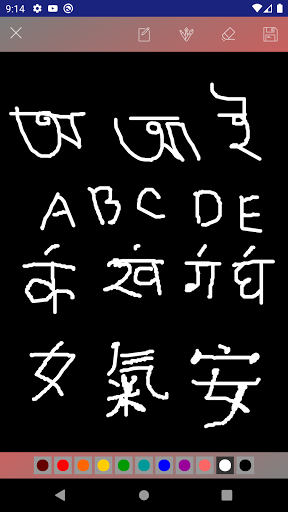 9:14
अ आ इ
A B C D E
कं खं गं घं
夕 氣 安